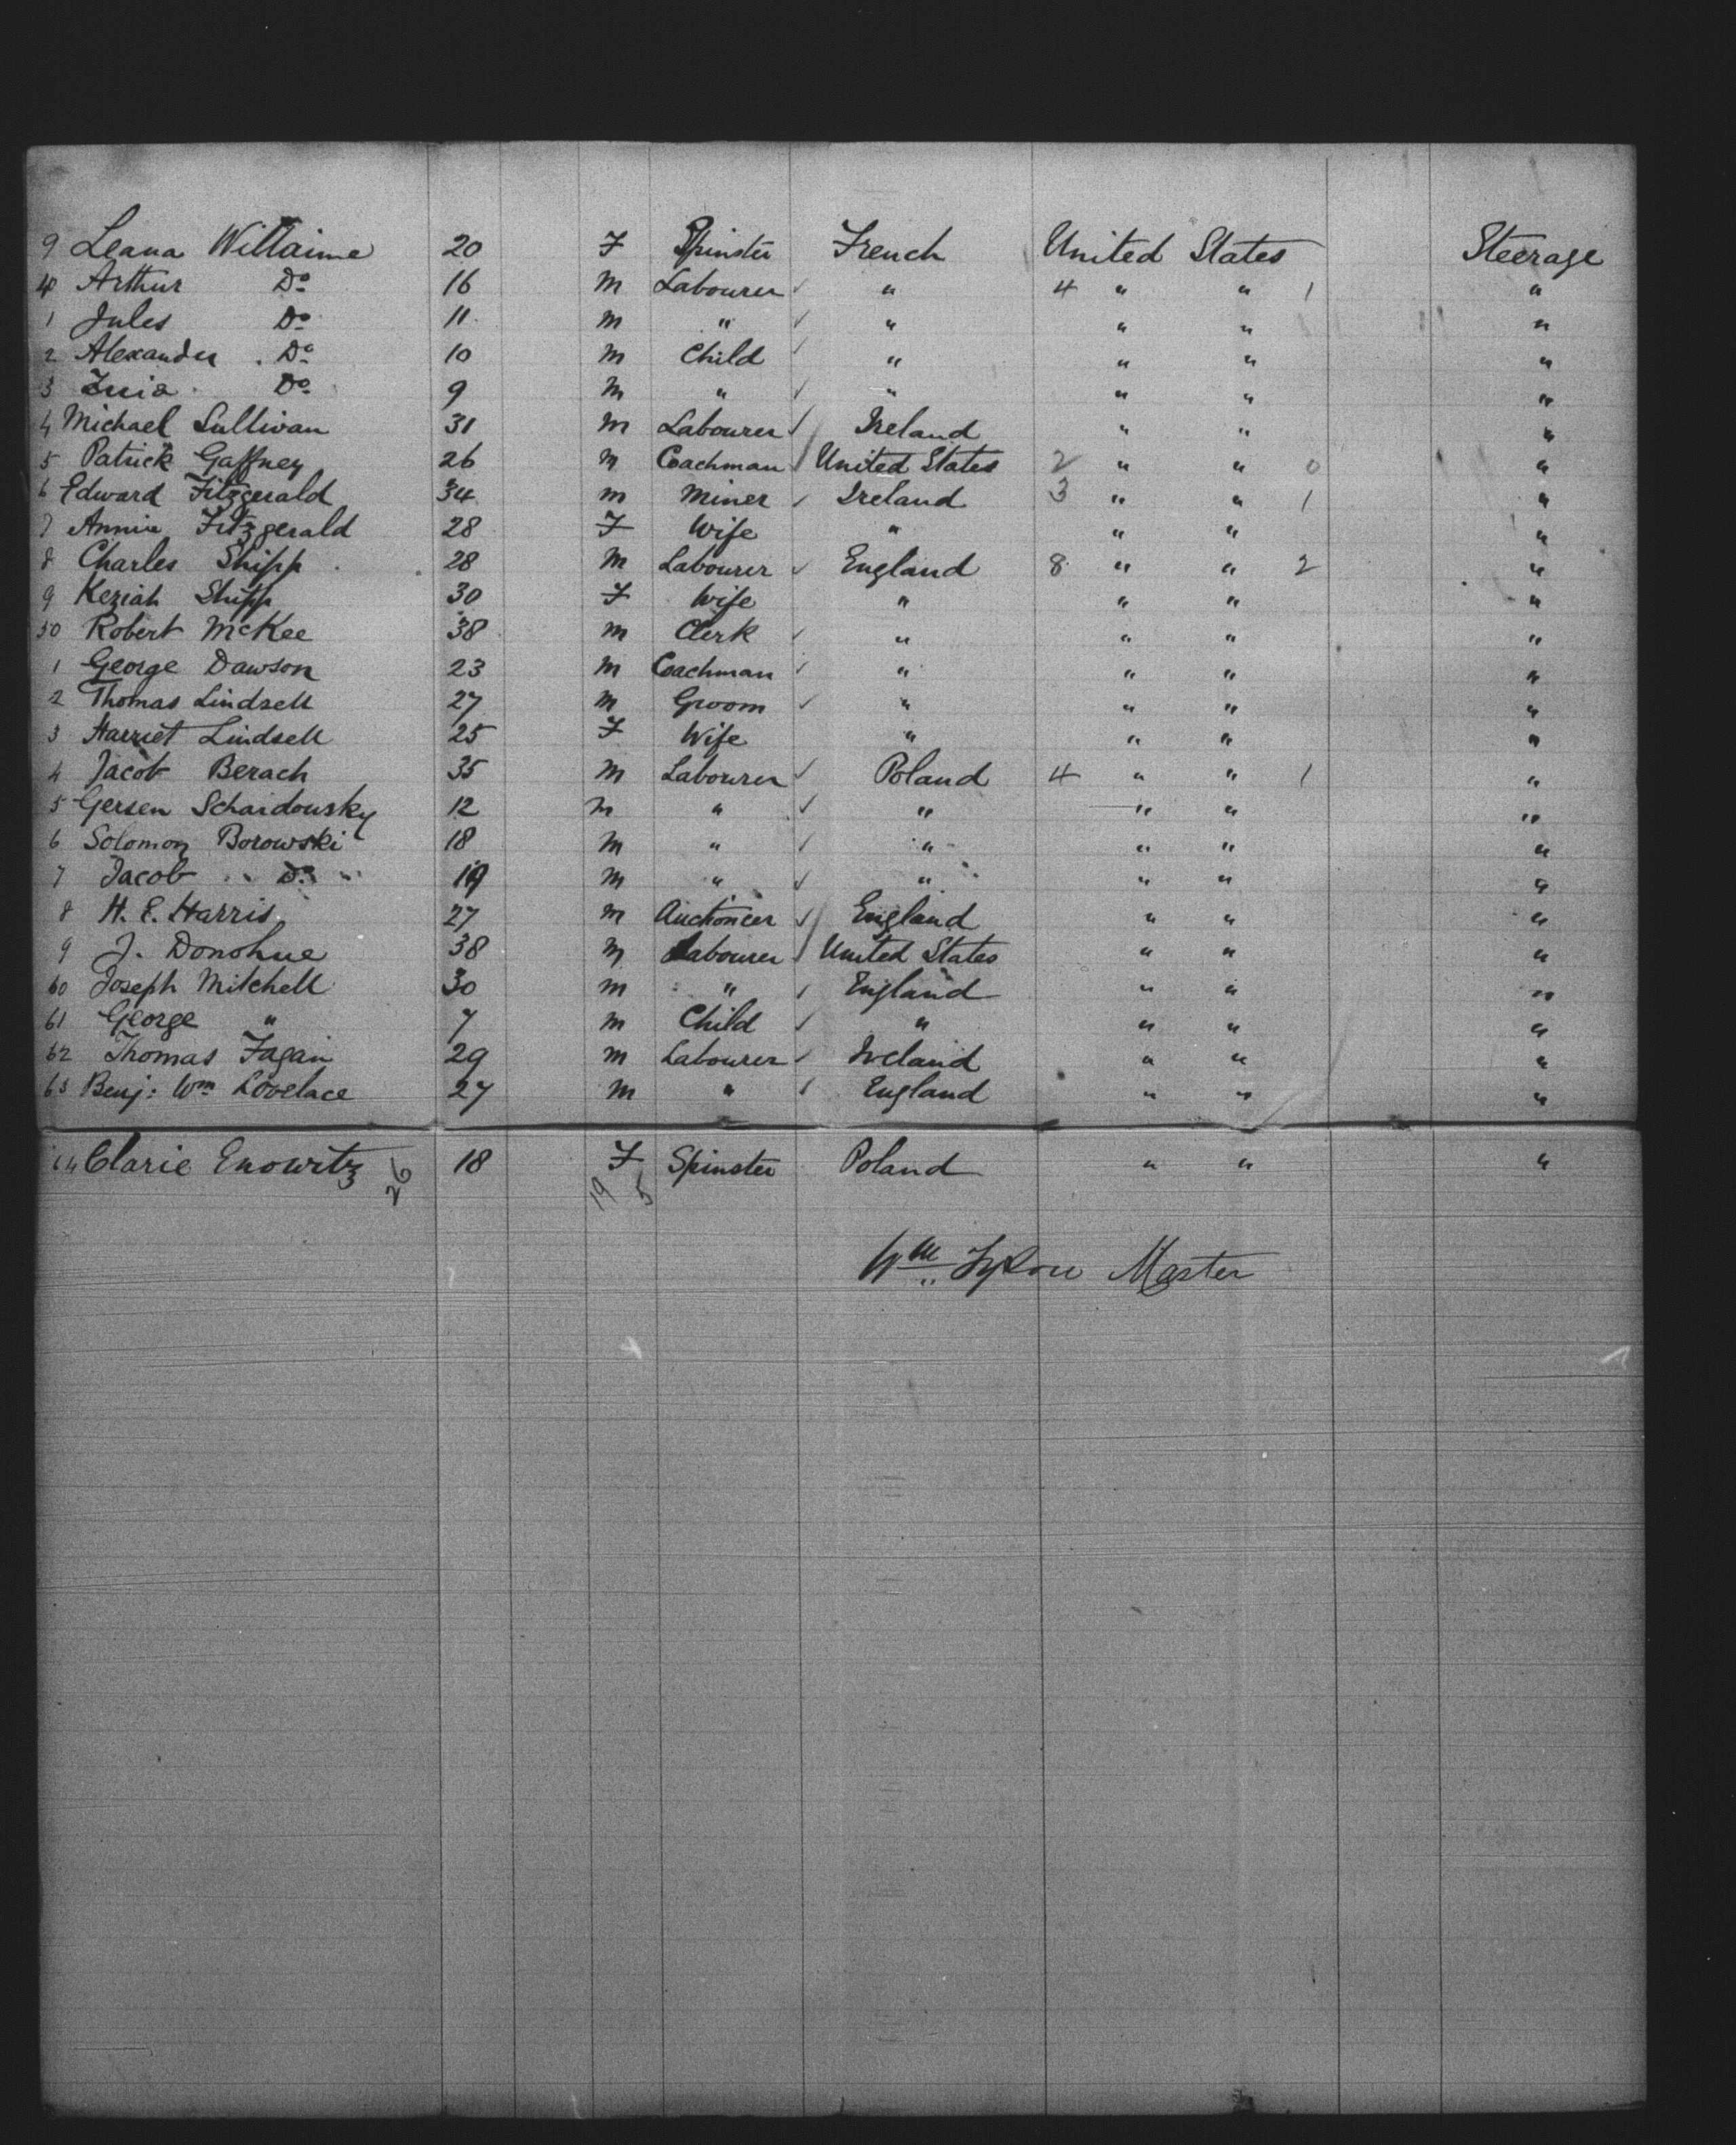 9 Leana Willaime 20 F Spinster French United States Steerage
40 Arthur Do 16 M Labourer " 4 " " 1 "
1 Jules Do 11 M " " " " "
2 Alexander Do 10 M Child " " " "
3 Do 9 M " " " " "
4 Michael Sullivan 31 M Labourer Ireland " " "
5 Patrick Gaffney 26 M Coachman United States 2 " " 0 "
6 Edward Fitzgerald 34 M Miner Ireland 3 " " 1 "
7 Annie Fitzgerald 28 F Wife " " " "
8 Charles Shipp 28 M Labourer England 8 " " 2 "
9 Keziah Shipp 30 F Wife " " " "
50 Robert McKee 38 M Clerk " " " "
1 George Dawson 23 M Coachman " " " "
2 Thomas Lindsell 27 M Groom " " " "
3 Harriet Lindsell 25 F Wife " " " "
4 Jacob Berach 35 M Labourer Poland 4 " " 1 "
5 Gersen Schaidousky 12 M " " " " "
6 Solomon Borowski 18 M " " " " "
7 Jacob Do 19 M " " " " "
8 H. E. Harris 27 M Auctioneer England " " "
9 J. Donohue 38 M Labourer United States " " "
60 Joseph Mitchell 30 M " England " " "
61 George " 7 M Child " " " "
62 Thomas Fagan 29 M Labourer Ireland " " "
63 Benj: Wm Lovelace 27 M " England " " "
64 Clarie Enowitz 18 F Spinster Poland " " "
26 19 5
Wm Master